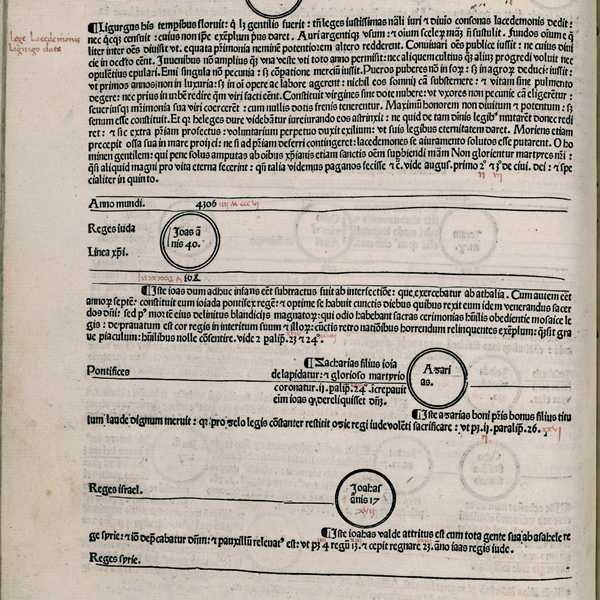 ¶Ligurgus his temporibus floruit: qui licet gentilis fuerit: tamen leges iustissimas
nec quicquam censuit: cuius non ipse exemplum prius daret. Auri argentique vsum: et omnium scelerum
liter inter omnes diuisit vt. equata patrimonia neminem potentiorem altero redderent. Conuiuari omnes publice iussit: ne cuius diui
cie in occulto essent. Iuuenibus non amplius quam vna veste vti toto anno permisit: nec aliquem cultius quam alium progredi voluit nec
opulentius epulari. Emi singula non pecunia: sed compensatione mercium iussit. Pueros puberes non in forum: sed in agrum deduci iussit:
vt primos annos non in luxuria: sed in omni opere ac labore agerent: nichil eos somni causa substernere: et vitam sine pulmento
degere: nec prius in vrbem redire quam viri facti essent. Constituit virgines sine dote nubere: vt vxores non pecunie causa eligerentur:
seueriusque matrimonia sua viri coercerent: cum nullis dotis frenis tenerentur. Maximum honorem non diuitum et potentum: sed
senum esse constituit. Et quia heleges dure videbantur iureiurando eos astrinxit: ne quid de tam diuinis legibus mutarent donec redi
ret: et sic extra patriam profectus: voluntarium perpetuo duxit exilium: vt suis legibus eternitatem daret. Moriens etiam
precepit ossa sua in mare proijci: ne si ad patriam deserri contingeret: lacedemones se aiuramento solutos esse putarent. O ho
minem gentilem: qui pene solus amputas aboibus christianis etiam sanctis omnem superbiendi materiam Non glorientur martyres
si aliquid magni pro vita eterna fecerint: quum talia videmus paganos fecisse et c. vide august. primo 2º et 3º de ciui. dei: et spe
cialiter in quinto.
Lege Lacedemonis
Ligurgo date
Anno mundi. 4306
Reges iuda
Linea xpi.
Ioas an
nis 40.
¶Iste ioas dum adhuc infans esset subtractus fuit ab intersectione: que exercebatur ab athalia. Cum autem esset
annorum septem: constituit eum ioiada pontifex regem: et optime se habuit cunctis diebus quibus rexit eum idem venerandus sacer
dos domini: sed post mortem eius delinitus blandicijs magnatorum: qui odio habebant sacras cerimonias humilis obedientie mosaice le
gis: deprauatum est cor regis in interitum suum et illorum: cunctis retro nationibus horrendum relinquentes exemplum: quam sit gra
ue piaculum: humilibus nolle consentire. vide 2 palip. 23 et 24.
Pontifices
¶Zacharias filius ioia
de lapidatur: et glorioso martyrio
coronatur. ij. palip. 24. icrepauit
eim ioas quod dereliquisset dominum.
Azari
as.
¶Iste azarias boni patris bonus filius titu
tum laude dignum meruit: quia pro zelo legis constanter restitit ozie regi iude volenti sacrificare: vt patet. ij. paralip. 26.
Reges israel.
Ioahas
annis 17
xvij
¶Iste ioahas valde attritus est cum tota gente sua ab asahele re
ge syrie: et ideo deprecabatur dominum: et pauxillum releuatus est: vt patet 4 regum 13. et cepit regnare 23. anno ioas regis iude.
Reges syrie.